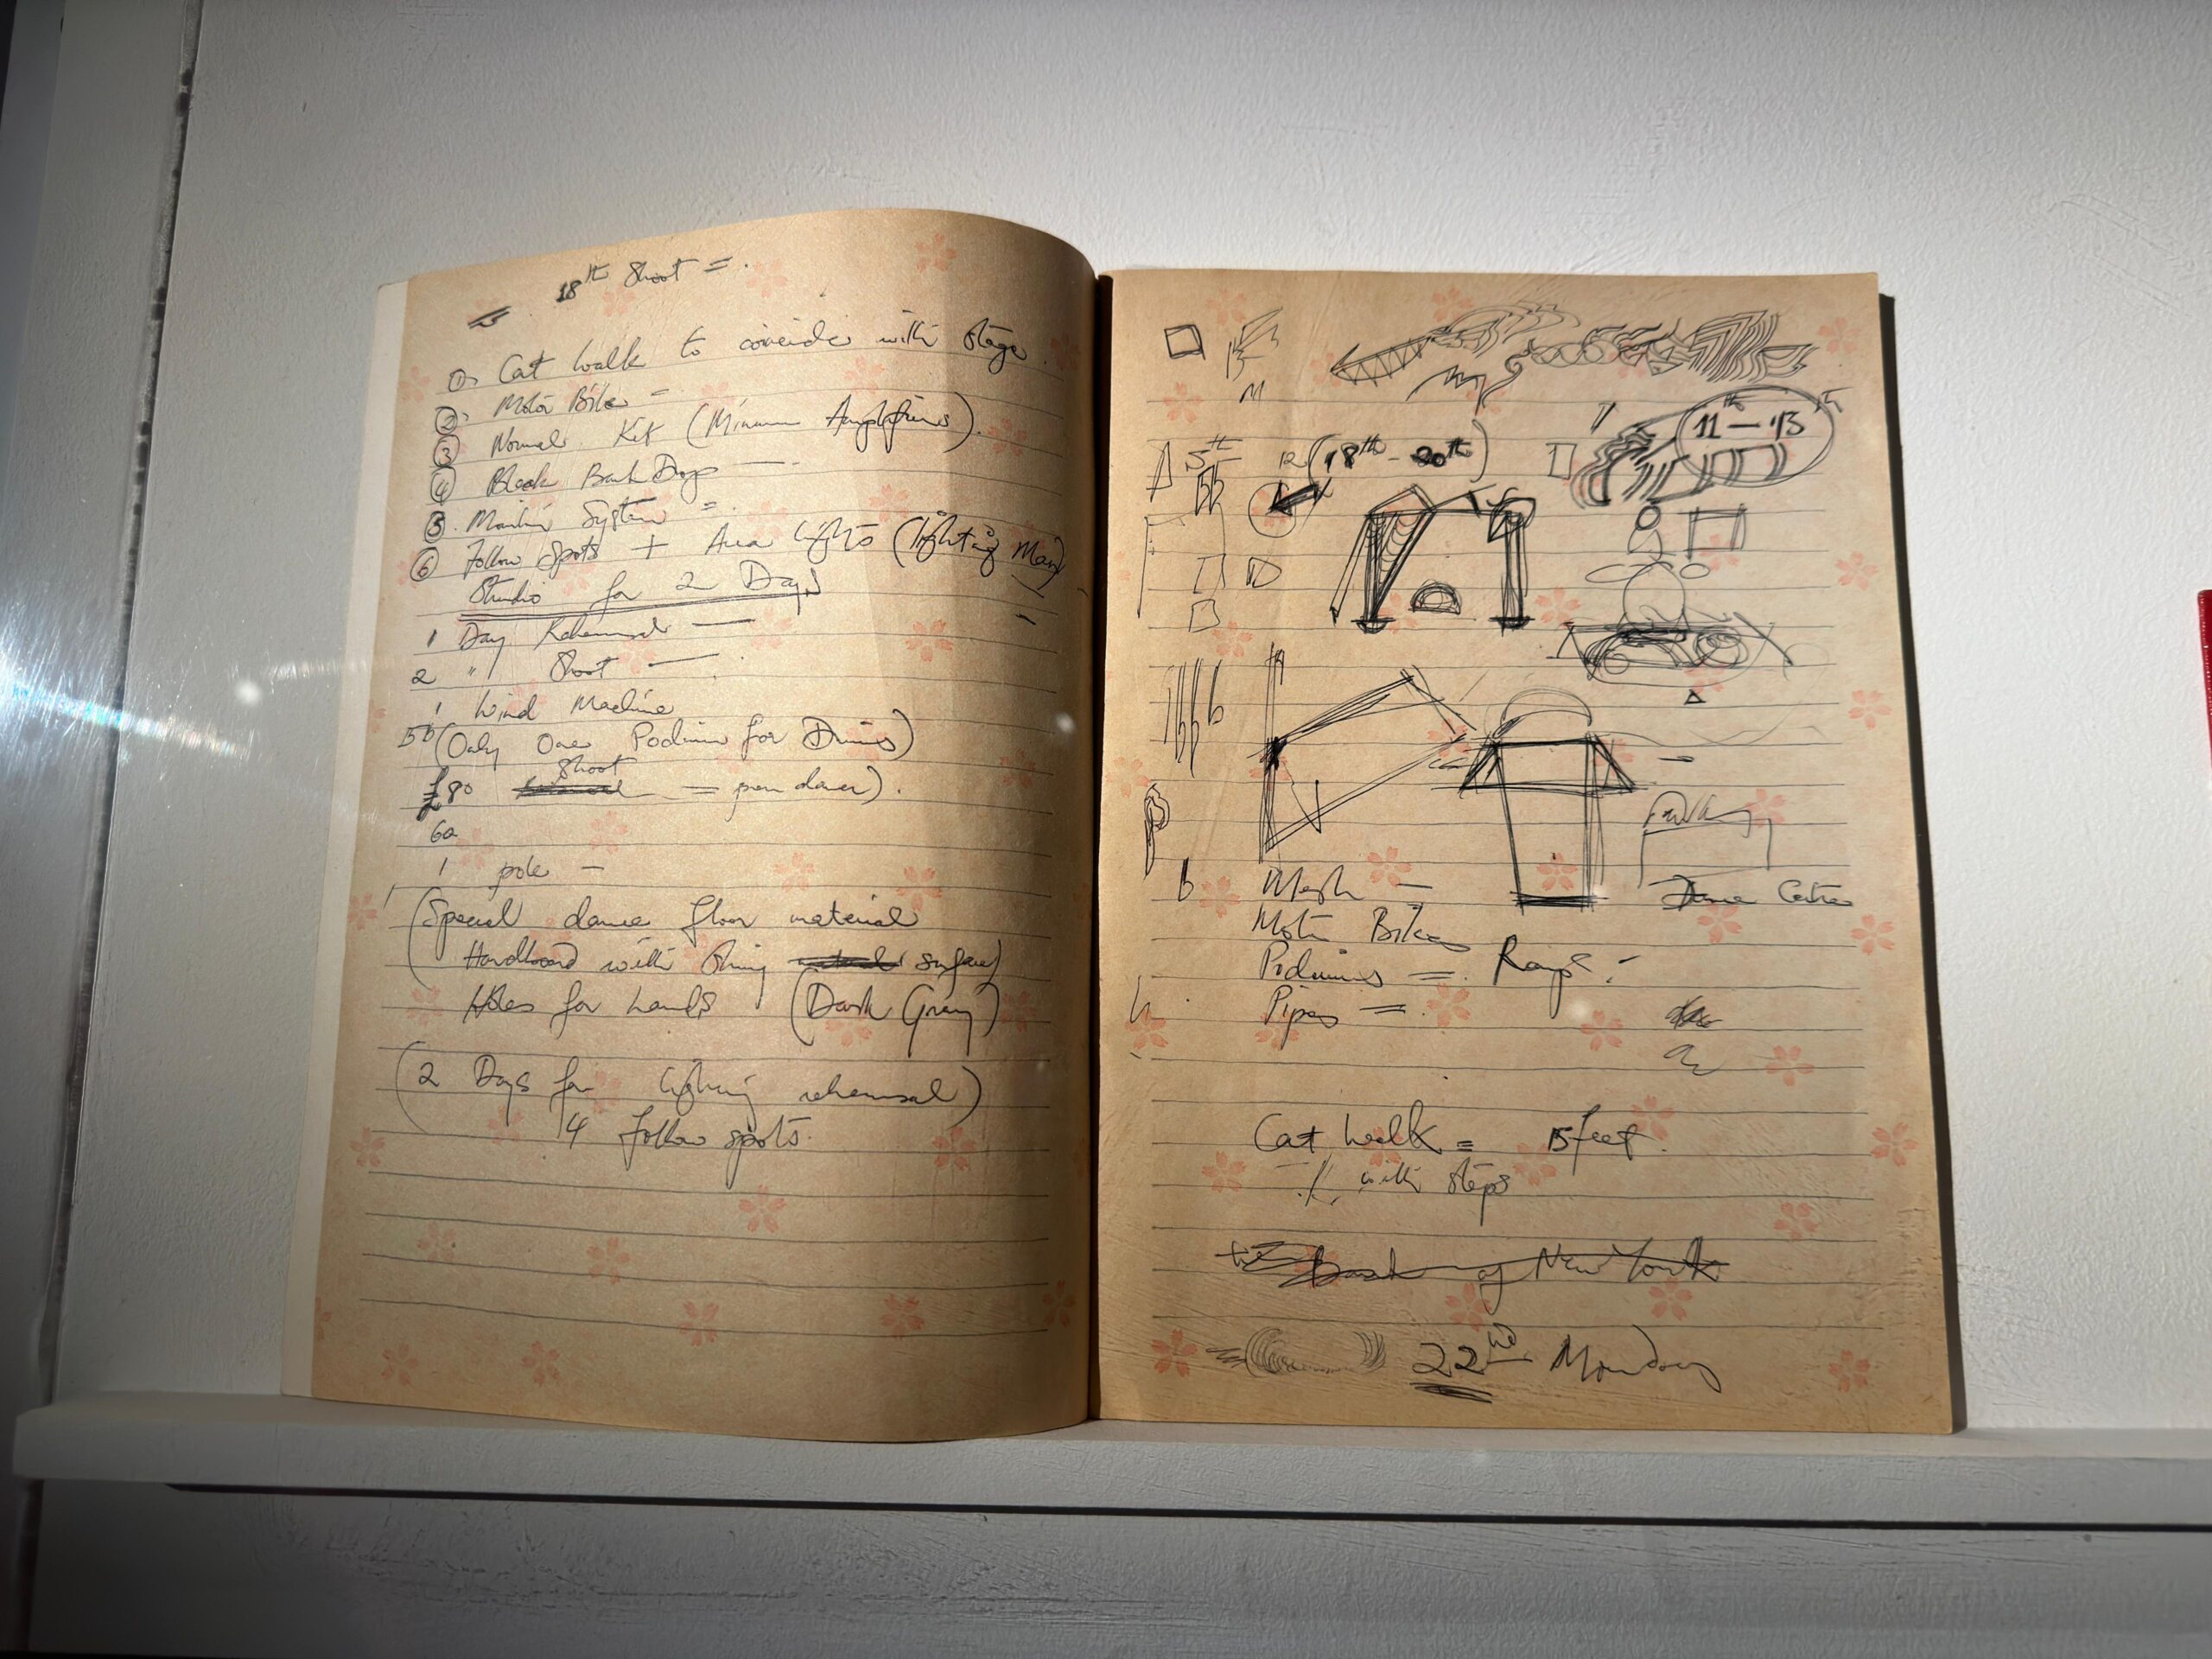 18th Shoot =
① Cat Walk to coincide with Stage.
② Motor Bike =
③ Normal Kit (Minimum Amplifiers).
④ Black Back Drops —
5. System =
⑥ Follow Spots + Area lights (lighting Man)
Studio for 2 Days
1 Day Rehearsal —
2 " Shoot —
1 Wind Machine
(Only One Podium for Drums)
Shoot
£80 = per dancer).
60
1 pole —
(Special dance floor material
Hardboard with Shiny surface)
Holes for hands (Dark Grey)
(2 Days for lighting rehearsal)
4 Follow spots.
M
11th — 13th
5th 12 (18th - 20th)
Mesh —
Dance Centre
Motor Bikes
Podiums = Ramps :-
Pipes =
Cat Walk = 15 feet.
with steps
Bank of New York
22nd Monday